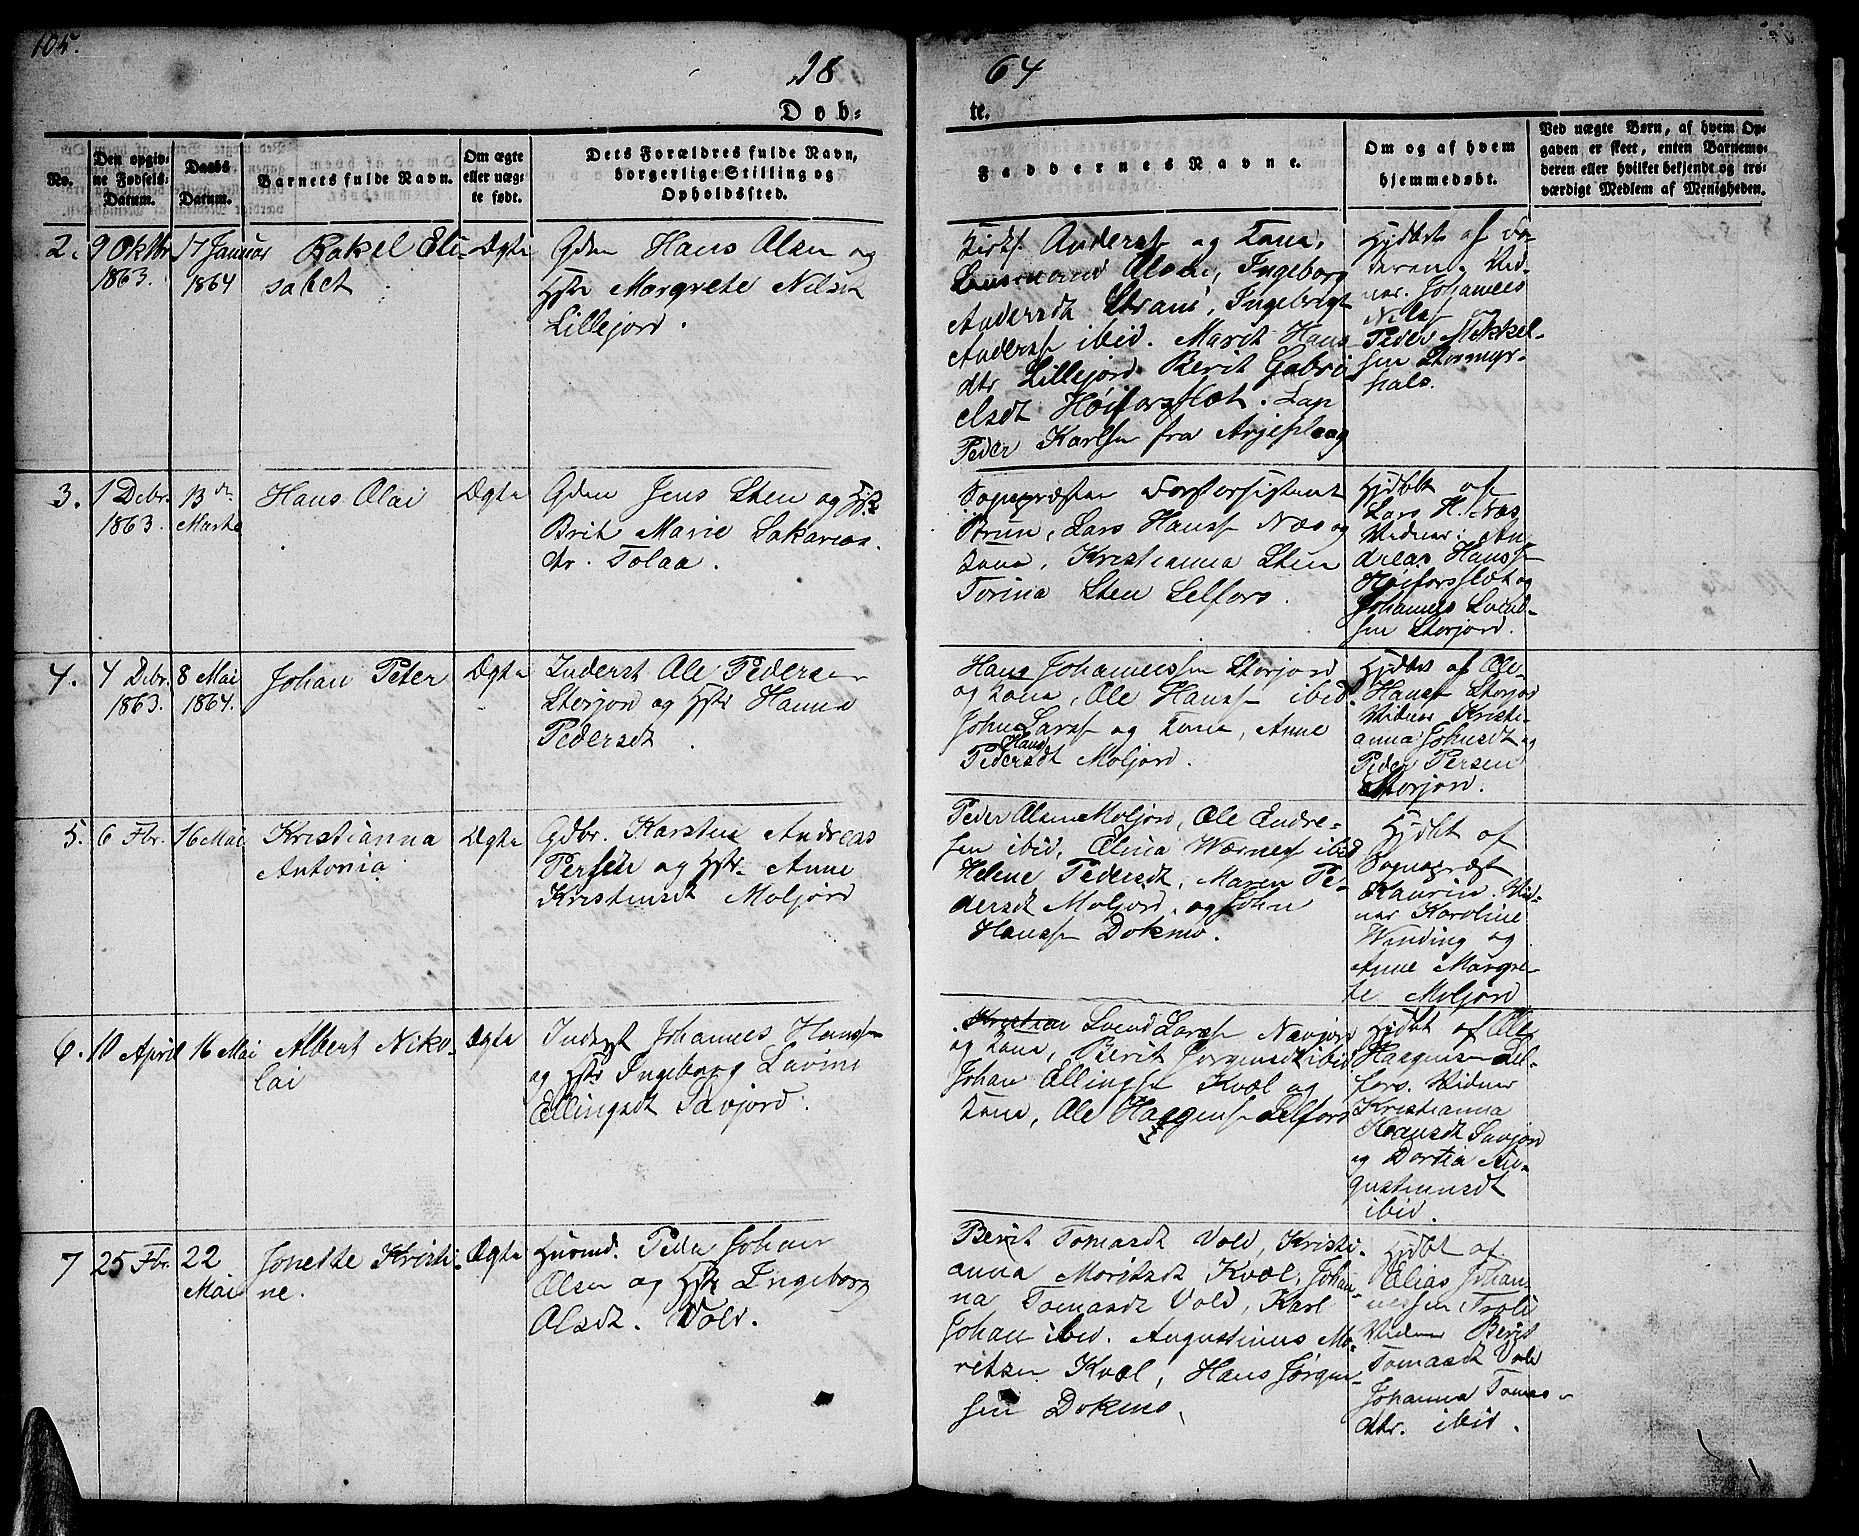 105.
18
64
Døb-
te.
No.
Den opgiv-
ne Fødsels-
Datum.
Daabs
Datum.
Barnets fulde Navn.
Om ægte
eller uæg-
te født.
Dets Forældres fulde Navn,
borgerlige Stilling og
Opholdssted.
Faddernes Navne.
Om og af hvem
hjemmedøbt.
Ved uægte Børn, af hvem Op-
gaven er skeet, enten Barnemo-
deren eller hvilket bekjendt og tro-
værdigt Medlem af Menigheden.
2.
9 Oktbr
1863.
17 Januar
1864
Rakel Eli-
sabet
Ægte
Gdm Hans Olsen og
Hstr Margrete Nilsdt
Lillejord.
Anderss og Kona,
Olsen, Ingeborg
Andersdt Strani, Ingebrigt
Anderss ibid. Marit Hans
dtr Lillejord Berit Gabri
elsdt Høiforsslæt. Lap
Peder Karlsen fra Arjeploug
Hjdøbt af Fa-
deren. Vid-
ner. Johannes
Nilss og
Peder Mikkel-
sen Stormyr-
hals.
3.
1 Debr.
1863.
13de
Marts
Hans Olai
Ægte
Gdm Jens Sten og Hstr
Brit Marie Sakarias
dtr. Tolaa.
Sognepræsten Forstassistent
Brun, Lars Hanss Næs og
Kona, Kristianna Sten
Torina Sten Selfors.
Hjdøbt af
Lars H. Næs
Vidner: An
dreas Hanss
Høiforsslæt og
Johannes Svend-
sen Storjord.
4.
4 Debr.
1863.
8 Mai
1864.
Johan Peter
Ægte
Inderst Ole Pedersen
Storjord og Hstr Hanna
Pedersdt
Hans Johannessen Storjord
og Kona, Ole Hanss ibid.
John Larss og Kona, Anne
Hans
Pedersdt Moljord.
Hjdøbt af Ole
Hanss Storjord
Vidner Kristi-
anna Johnsdt og
Peder Persen
Storjord.
5.
6 Fbr.
16 Mai
Kristianna
Antonia
Ægte
Gdbr. Karsten Andreas
Persen og Hstr. Anne
Kristensdt Moljord
Peder Olsen Moljord, Ole Endre-
sen ibid, Elina Wærness ibid
Helene Pedersdt, Maren Pe-
dersdt Moljord, og John
Hanss Dokmo.
Hjdøbt af
Sognepræst
Kaurin. Vid-
ner Karoline
Winding og
Anne Margre-
te Moljord
6.
10 April
16 Mai
Albert Niko-
lai
Ægte
Inderst Johannes Hanss
og Hstr Ingeborg Lavine
Ellingsdt Savjord.
Kristian Svend Larss Navjord
og Kona, Berit Jørgensdt ibid
Johan Ellingss Kvæl og
Kona, Ole Haagenss Selfors
Hjdøbt af Ole
Haagensen Sel-
fors. Vidner
Kristianna
Hansdt Savjord
og Dortia Au-
gustinusdt
ibid.
7
25 Fbr.
22
Mai
Jonette Kristi-
ne.
Ægte
Husmd. Peder Johan
Olsen og Hstr Ingeborg
Olsdt. Vold.
Berit Tomasdt Vold, Kristi-
anna Moritsdt Kvæl, Johan-
na Tomasdt Vold, Karl
Johan ibid. Augustinus Mo-
ritsen Kvæl, Hans Jørgen-
sen Dokmo.
Hjdøbt af
Elias Johan-
nesen Troli
Vidner Berit
Tomasdt Vold
Johanna Tomas-
dtr. ibid.